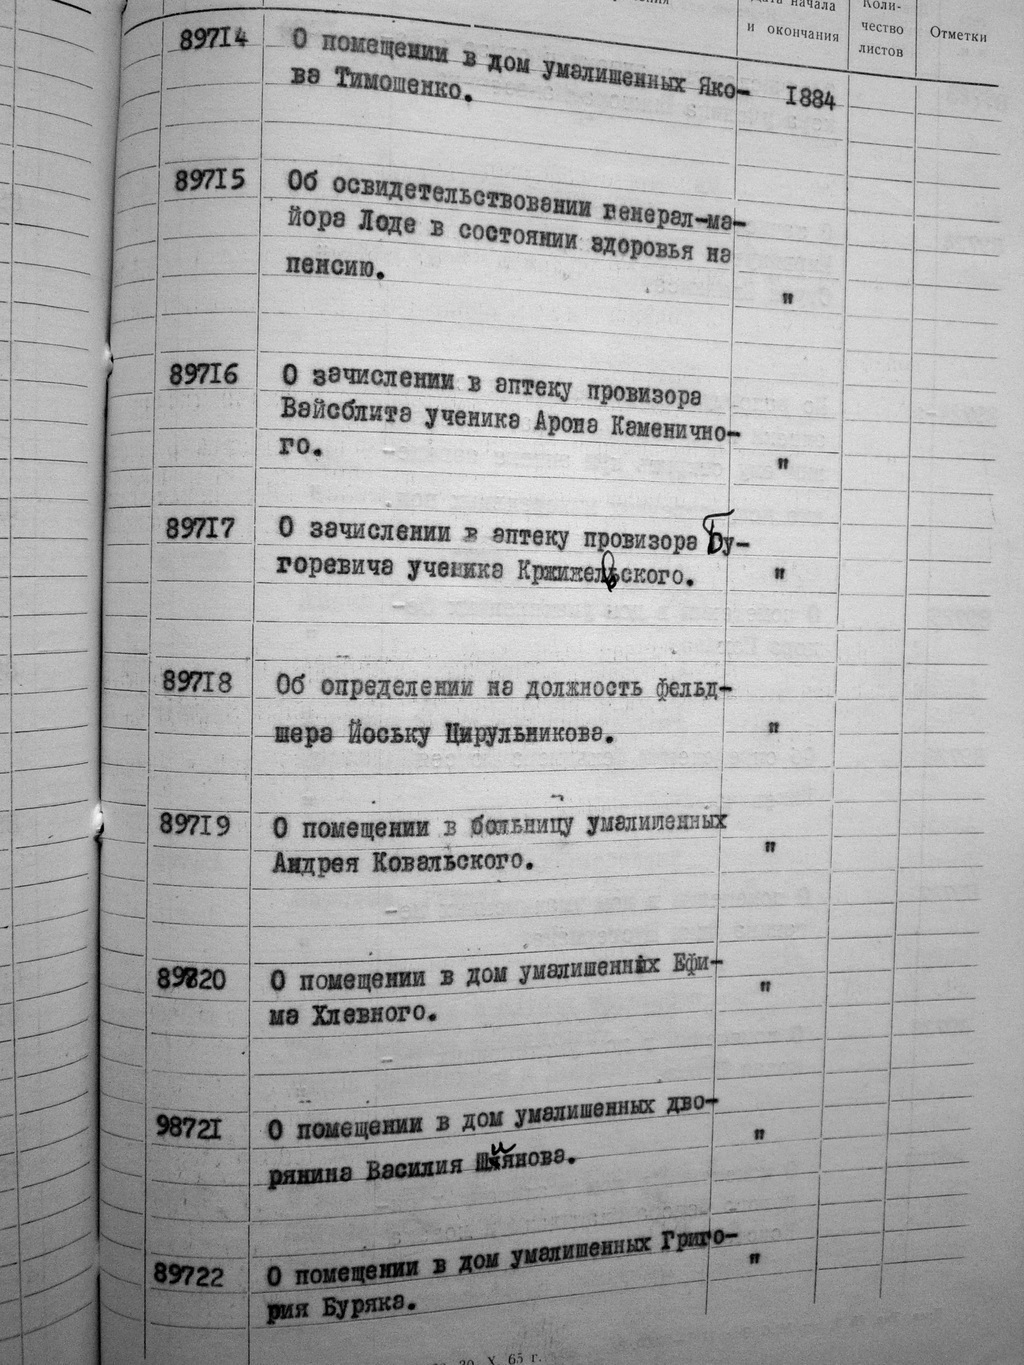 Дата начала
и окончания
Коли-
чество
листов
Отметки
89714 О помещении в дом умалишенных Яко-
ва Тимошенко. 1884
89715 Об освидетельствовании генерал-ма-
йора Лоде в состоянии здоровья на
пенсию. "
89716 О зачислении в аптеку провизора
Вайсблита ученика Арона Каменично-
го. "
89717 О зачислении в аптеку провизора Бу-
горевича ученика Кржижевского. "
89718 Об определении на должность фельд-
шера Йоську Цирульникова. "
89719 О помещении в больницу умалишенных
Андрея Ковальского. "
89720 О помещении в дом умалишенных Ефи-
ма Хлевного. "
98721 О помещении в дом умалишенных дво-
рянина Василия Шиянова. "
89722 О помещении в дом умалишенных Григо-
рия Буряка. "
30. X. 65 г.